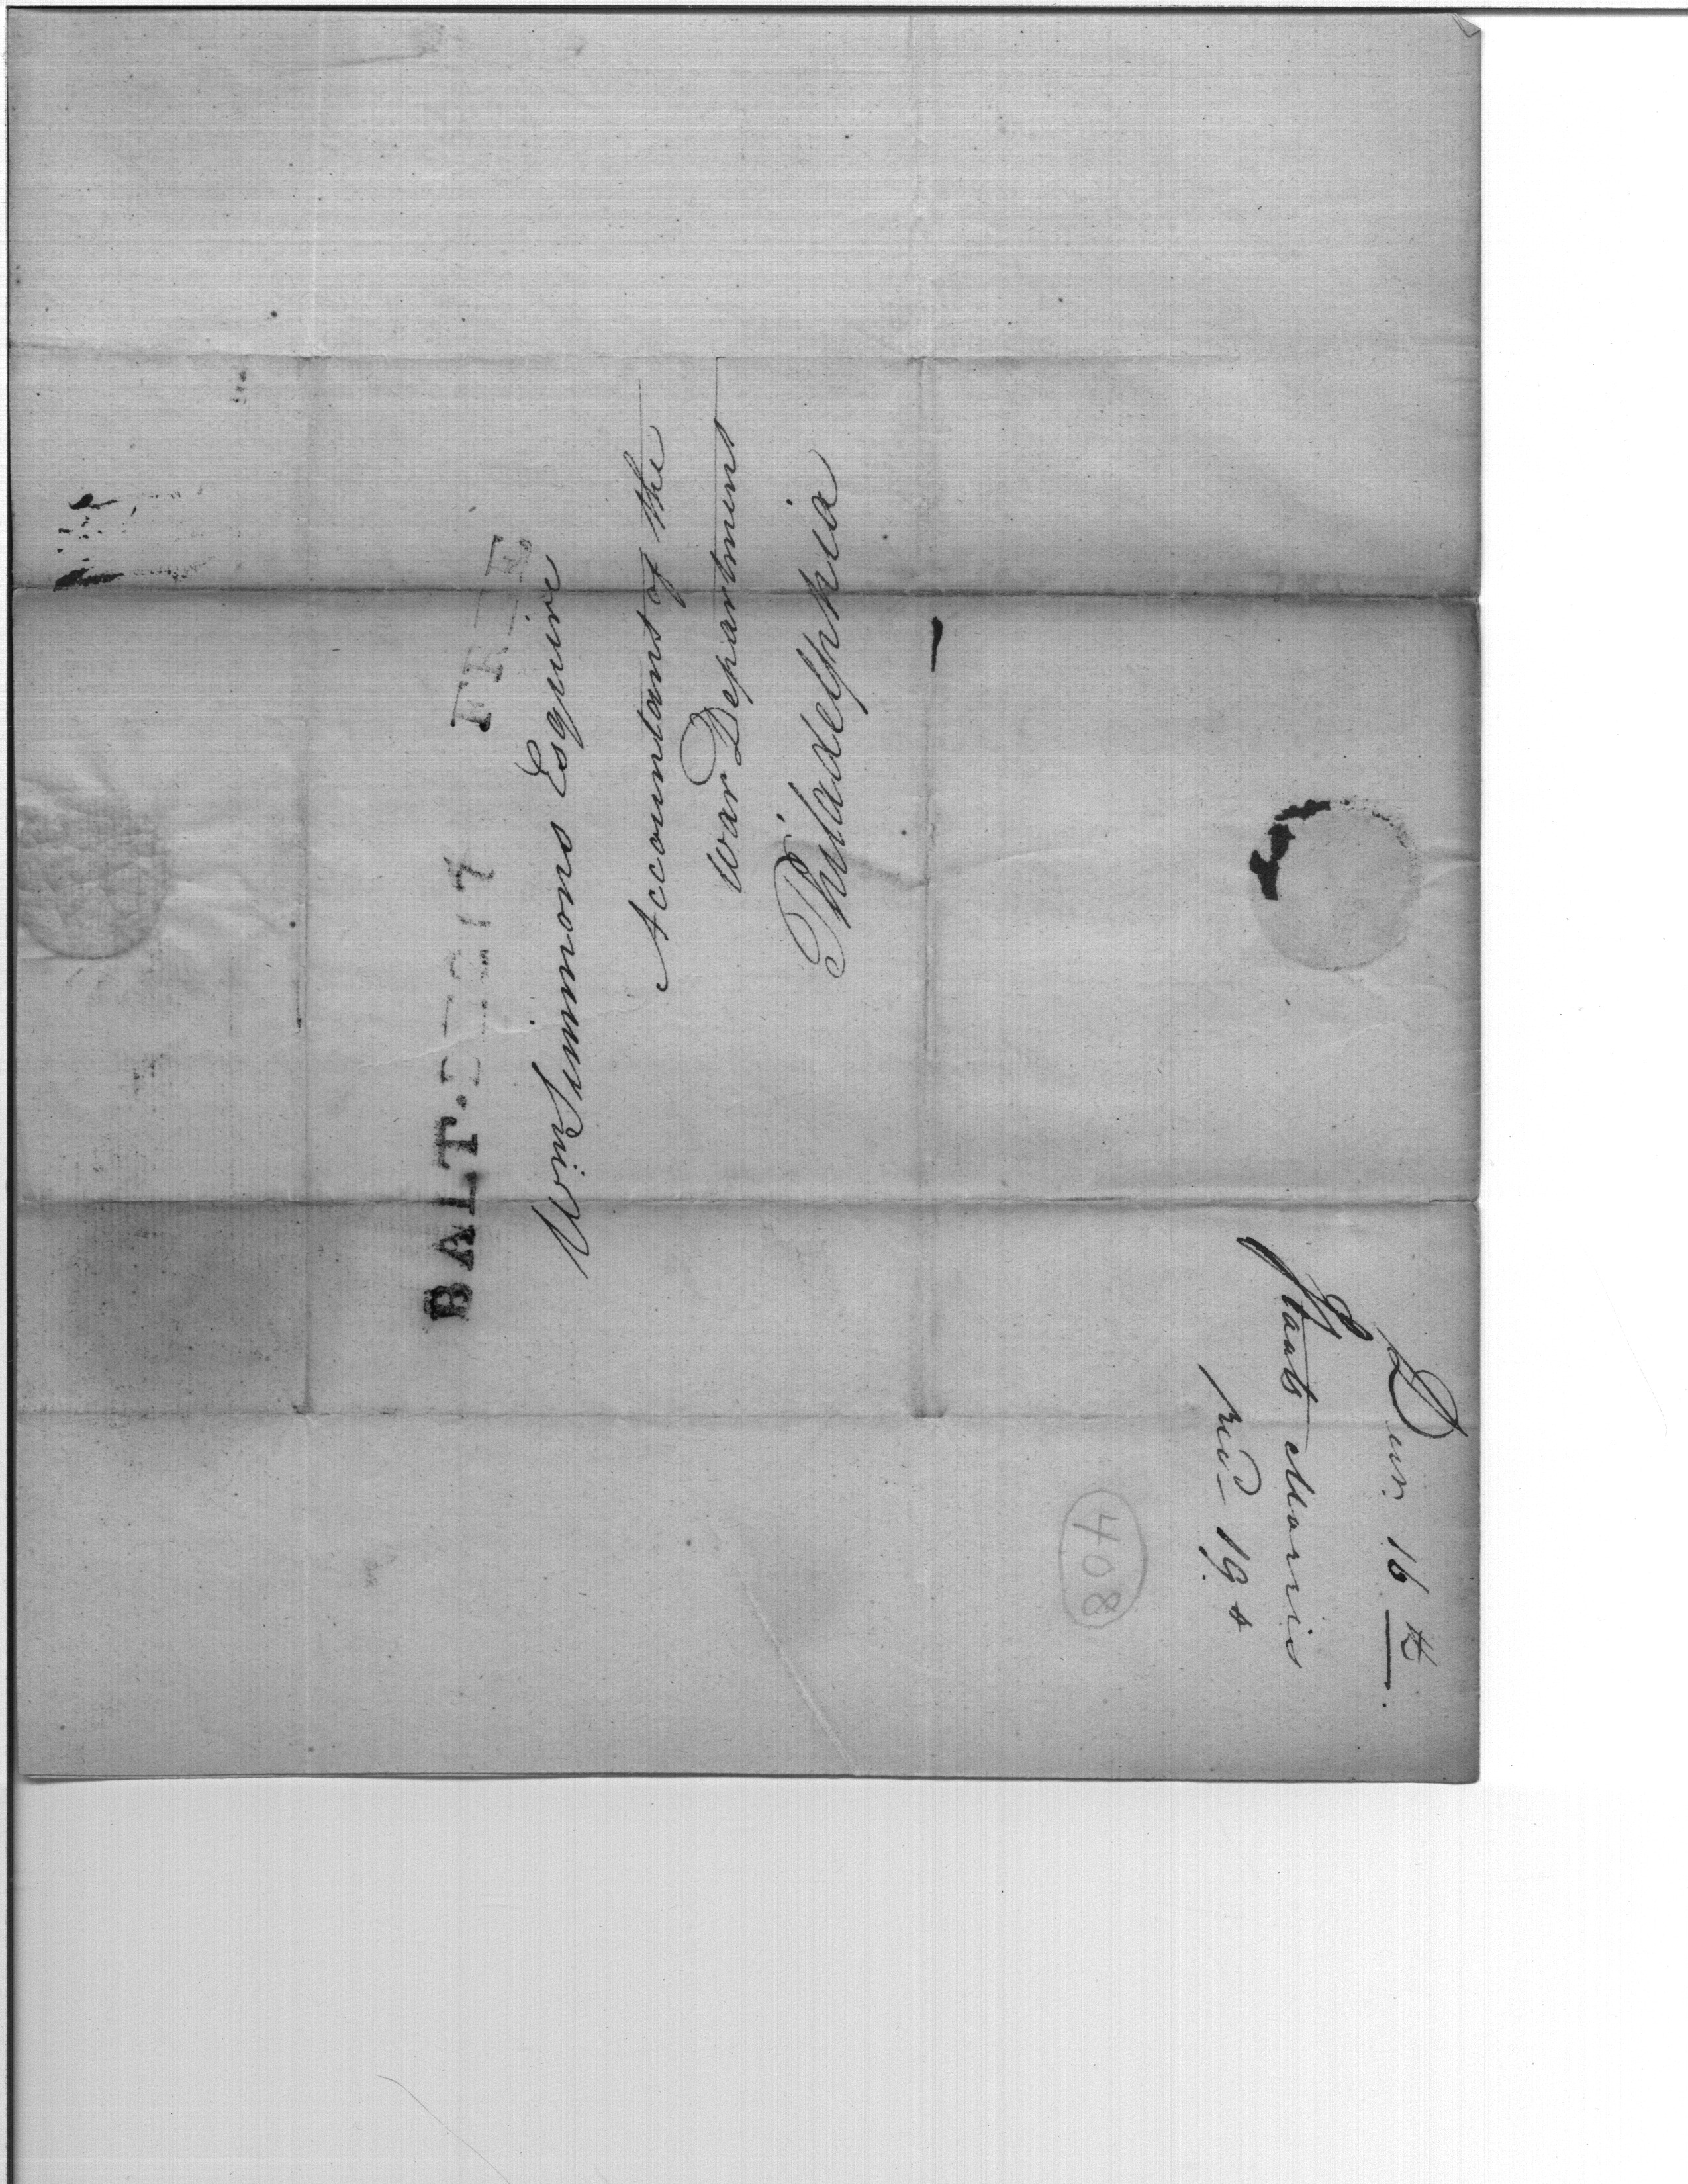 BALT. DE 17 FREE
Wm Simmons Esquire
Accountant of the
War Department
Philadelphia
Decr. 16th.
Staats Morris
recd 19.
408